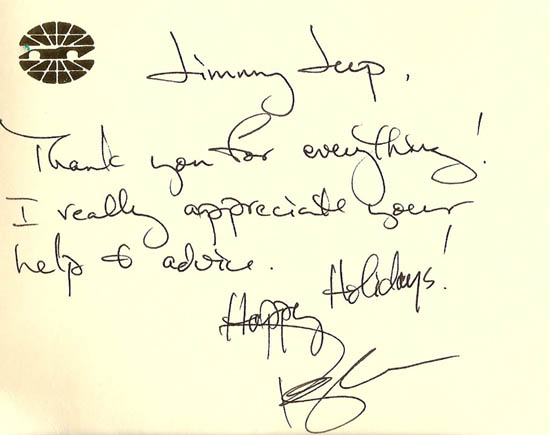 Jimmy Jeep,
Thank you for everything!
I really appreciate your
help & advice.
Happy Holidays!